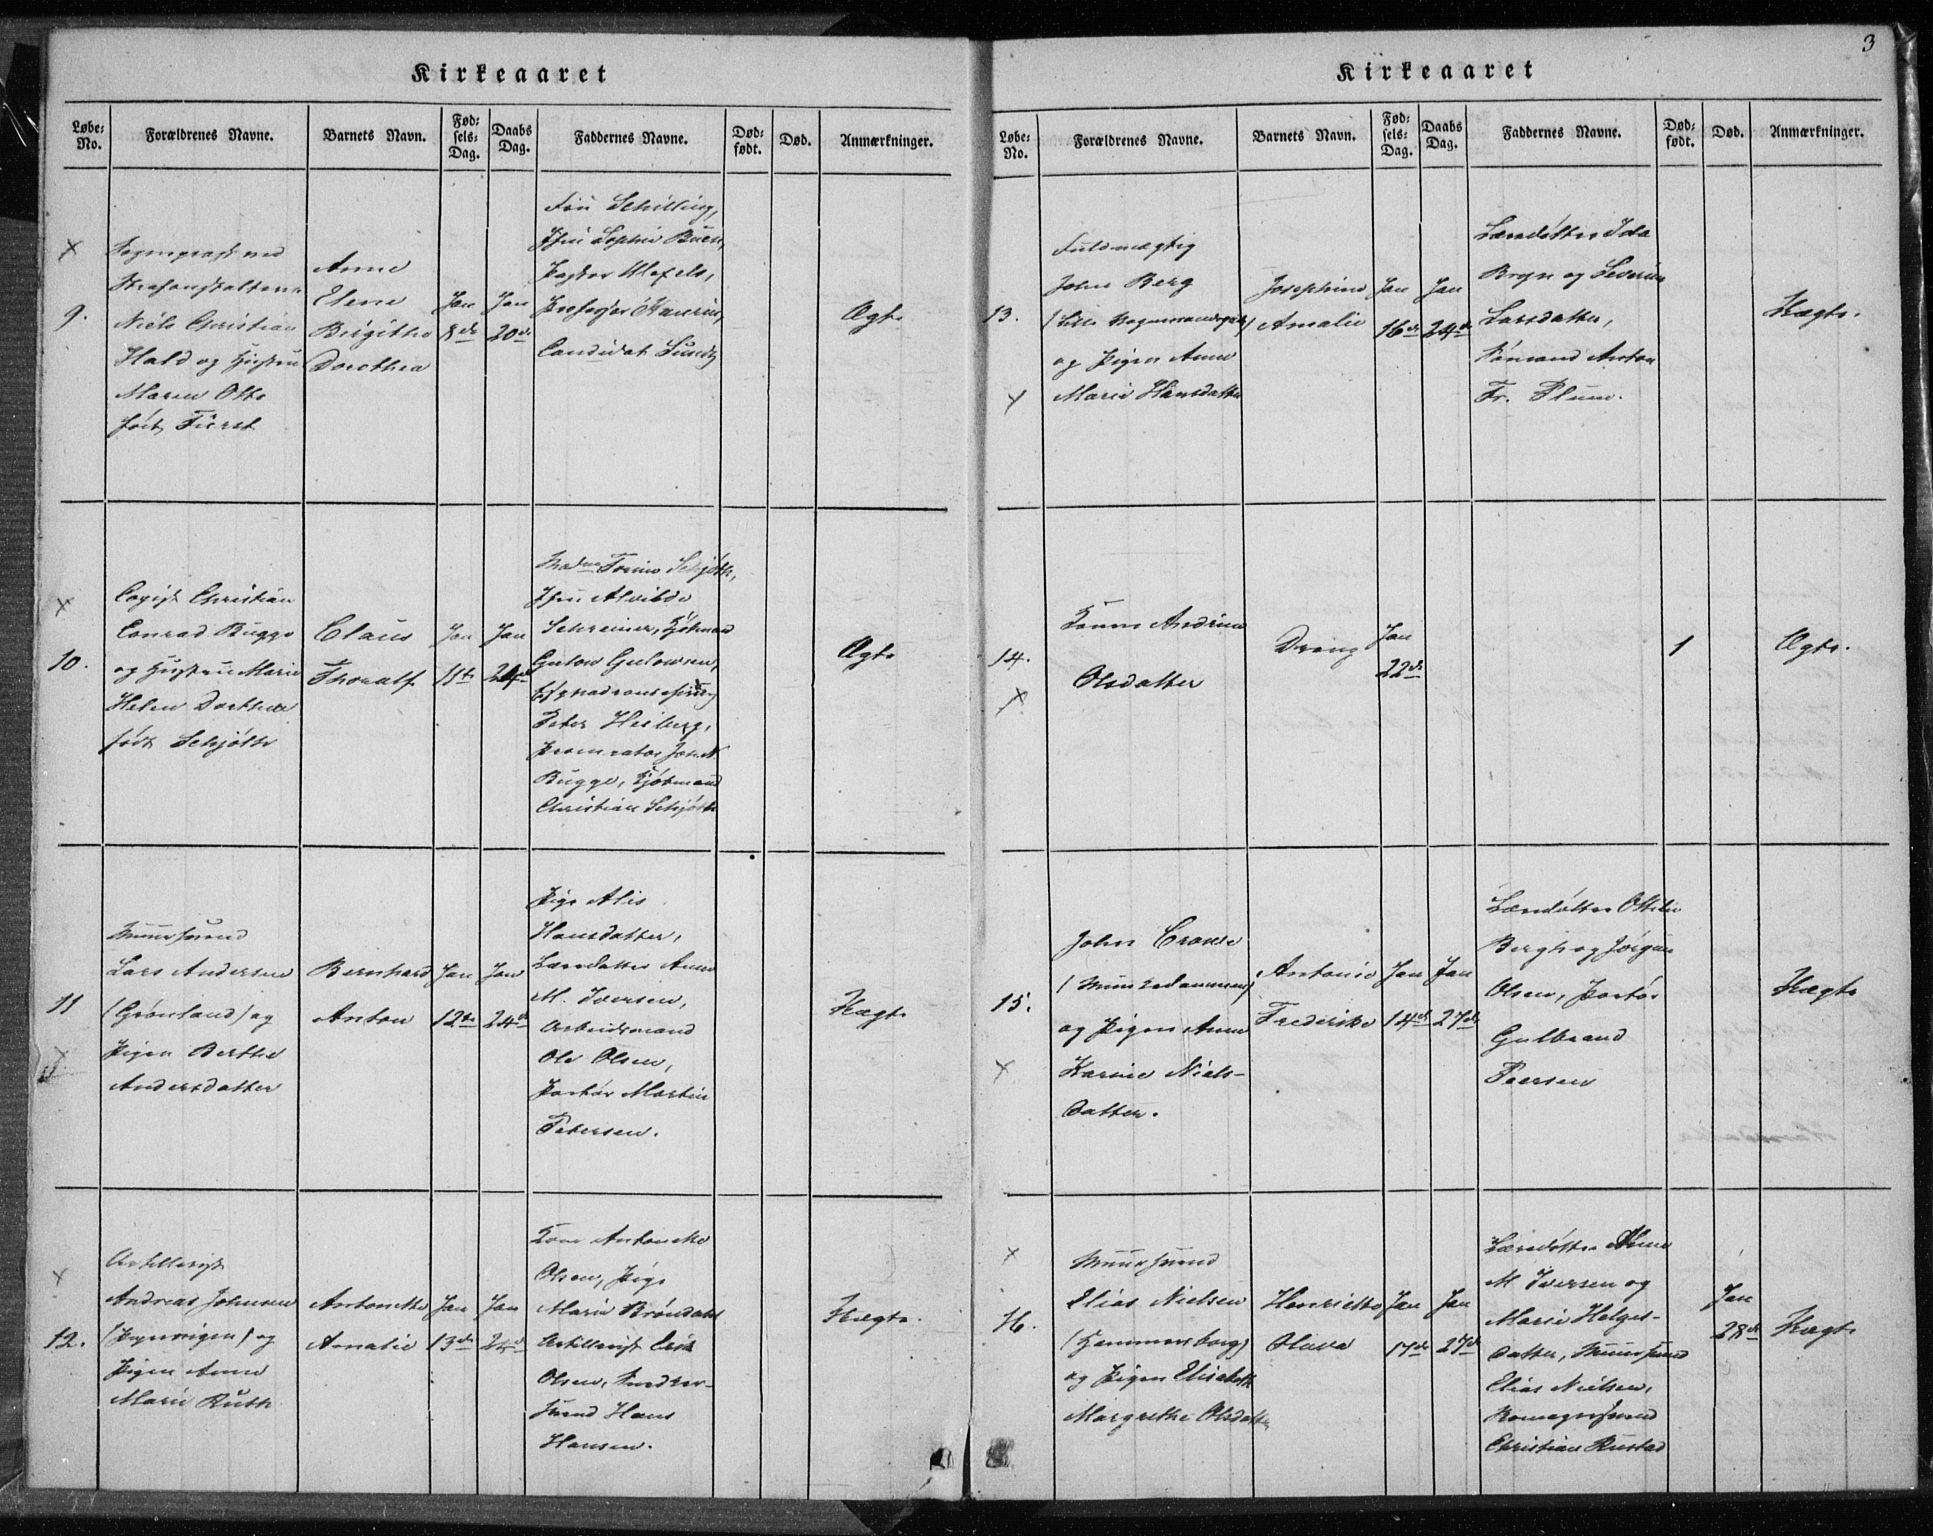 Kirkeaaret
Løbe-No.
Forældrenes Navne.
Barnets Navn.
Fød-sels-Dag.
Daabs Dag.
Faddernes Navne.
Død-født.
Død.
Anmærkninger.
9.
Sogneprest ved
Strafanstalterne
Niels Christian
Hald og Hustru
Maren Otto
født Fürst
Anne
Elene
Birgitha
Dorothea
Jan
8de
Jan
20de
Fru Schilling,
Jfru Sophie Buch,
Pastor
Professor
Candidat
Ægte
10.
Copist Christian
Conrad Bugge
og Hustru Marie
Helen Dorthea
født Schjøth
Claus
Thoralf
Jan
11te
Jan
24de
Madme Schjøth,
Jfru Alvilde
Schreiner, Kjøbmand
Gulow Gulowsen,
Peter Heiberg,
Procurator Joh. N.
Bugge, Kjøbmand
Christian Schjøth
Ægte
11
Muursvend
Lars Andersen
(Grønland) og
Pigen Berthe
Andersdatter
Bernhard
Anton
Jan
12te
Jan
24de
Pige Alis
Hansdatter,
Læredatter Anne
M. Iversen,
Arbeidsmand
Ole Olsen,
Portør Martin
Petersen.
Uægte
12.
Artillerist
Andreas Johnsen
(Pipervigen) og
Pigen Anne
Marie Ruth
Antonette
Amalie
Jan
13de
Jan
24de
Kone Antonette
Olsen, Pige
Marie Brøndahl
Artillerist Erik
Olsen, Snedker-
svend Hans
Hansen.
Uægte.
3
Kirkeaaret
Løbe-No.
Forældrenes Navne.
Barnets Navn.
Fød-sels-Dag.
Daabs Dag.
Faddernes Navne.
Død-født.
Død.
Anmærkninger.
13.
Fuldmægtig
John Berg
(Lille Vognmandsgade)
og Pigen Anne
Marie Hansdatter
Josephine
Amalie
Jan
16de
Jan
24de
Læredøttre Ida
Bryn og Severine
Larsdatter,
Sømand Anton
Fr. Plum.
Uægte.
14.
Konen Andrine
Olsdatter
Dreng
Jan
22de
1
Ægte.
15.
John Crowe
(Munkedammen)
og Pigen Anne
Karine Niels-
datter.
Antonie
Frederike
Jan
14de
Jan
27de
Læredøttre Ottilie
Bergh og Jørgine
Olsen, Portør
Gulbrand
Peersen
Uægte
16.
Muursvend
Elias Nielsen
(Hammersborg)
og Pigen Elisabeth
Margrethe Olsdatter
Henriette
Olava
Jan
17de
Jan
27de
Læredøttre Anne
M Iversen og
Marie Helges-
datter, Muursvend
Elias Nielsen,
Christian Rustad
Jan
28de
Uægte